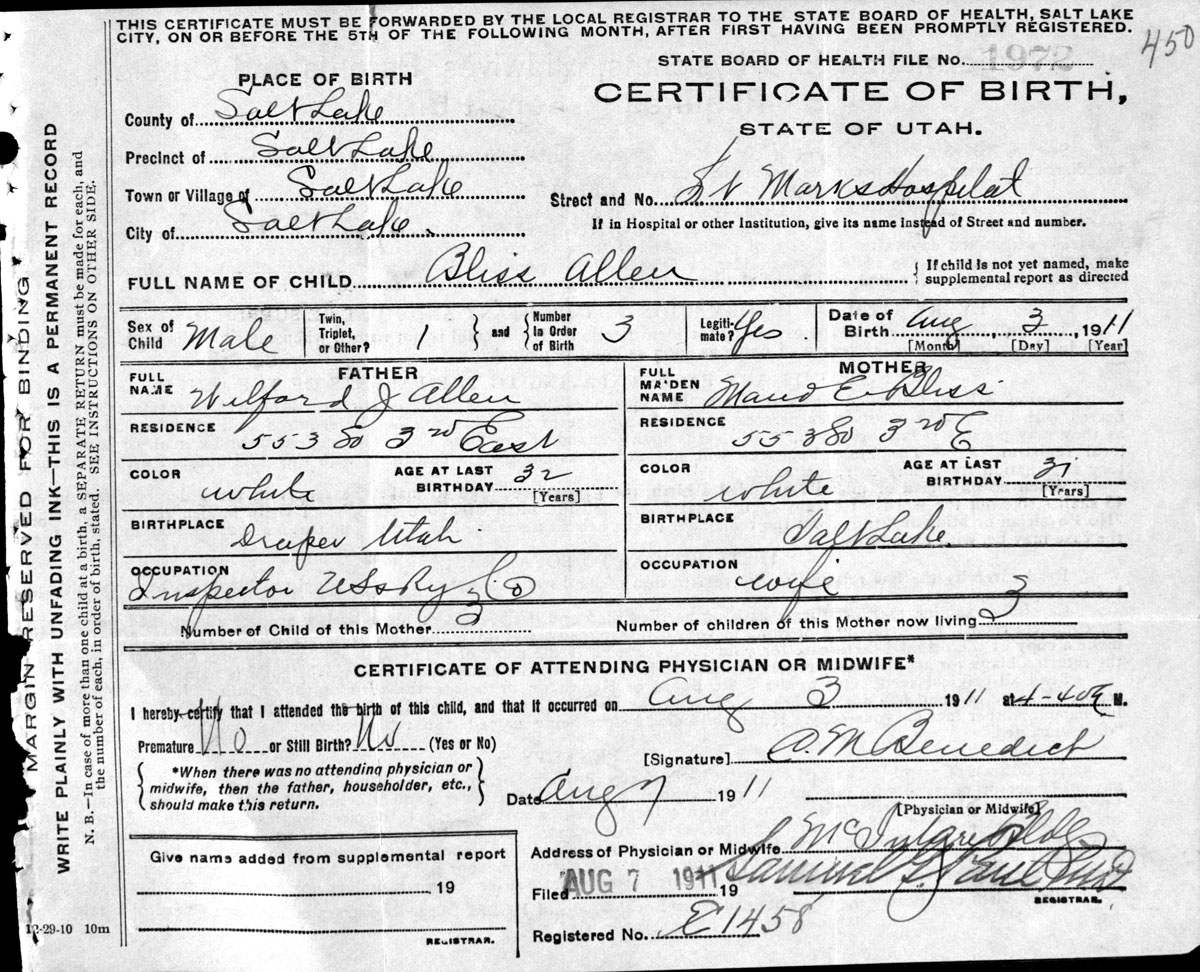 THIS CERTIFICATE MUST BE FORWARDED BY THE LOCAL REGISTRAR TO THE STATE BOARD OF HEALTH, SALT LAKE
CITY, ON OR BEFORE THE 5TH OF THE FOLLOWING MONTH, AFTER FIRST HAVING BEEN PROMPTLY REGISTERED.
450
STATE BOARD OF HEALTH FILE No. 1972
PLACE OF BIRTH
CERTIFICATE OF BIRTH,
STATE OF UTAH.
County of Salt Lake
Precinct of Salt Lake
Town or Village of Salt Lake
City of Salt Lake
Street and No. St Marks Hospital
If in Hospital or other Institution, give its name instead of Street and number.
FULL NAME OF CHILD Bliss Allen
{ If child is not yet named, make supplemental report as directed
Sex of Child Male
Twin, Triplet, or Other? 1 } and { Number in Order of Birth 3
Legitimate? Yes
Date of Birth Aug 3, 1911
[Month] [Day] [Year]
FATHER
FULL NAME Wilford J Allen
RESIDENCE 553 So 3rd East
COLOR White
AGE AT LAST BIRTHDAY 32 [Years]
BIRTHPLACE Draper Utah
OCCUPATION Inspector Co
MOTHER
FULL MAIDEN NAME Maud E Bliss
RESIDENCE 553 So 3rd E
COLOR White
AGE AT LAST BIRTHDAY 31 [Years]
BIRTHPLACE Salt Lake
OCCUPATION wife
Number of Child of this Mother 3
Number of children of this Mother now living 3
CERTIFICATE OF ATTENDING PHYSICIAN OR MIDWIFE*
I hereby certify that I attended the birth of this child, and that it occurred on Aug 3 1911 at 4-40 M.
Premature No or Still Birth? No (Yes or No)
[Signature] Benedict
{ *When there was no attending physician or midwife, then the father, householder, etc., should make this return. }
Date Aug 7 1911
[Physician or Midwife]
Address of Physician or Midwife McIntyre Bldg
Filed AUG 7 1911 19 Samuel G. Paul
REGISTRAR.
Registered No. E1458
Give name added from supplemental report
19
REGISTRAR.
12-29-10 10m
MARGIN RESERVED FOR BINDING
WRITE PLAINLY WITH UNFADING INK—THIS IS A PERMANENT RECORD
N. B.—In case of more than one child at a birth, a SEPARATE RETURN must be made for each, and
the number of each, in order of birth, stated. SEE INSTRUCTIONS ON OTHER SIDE.